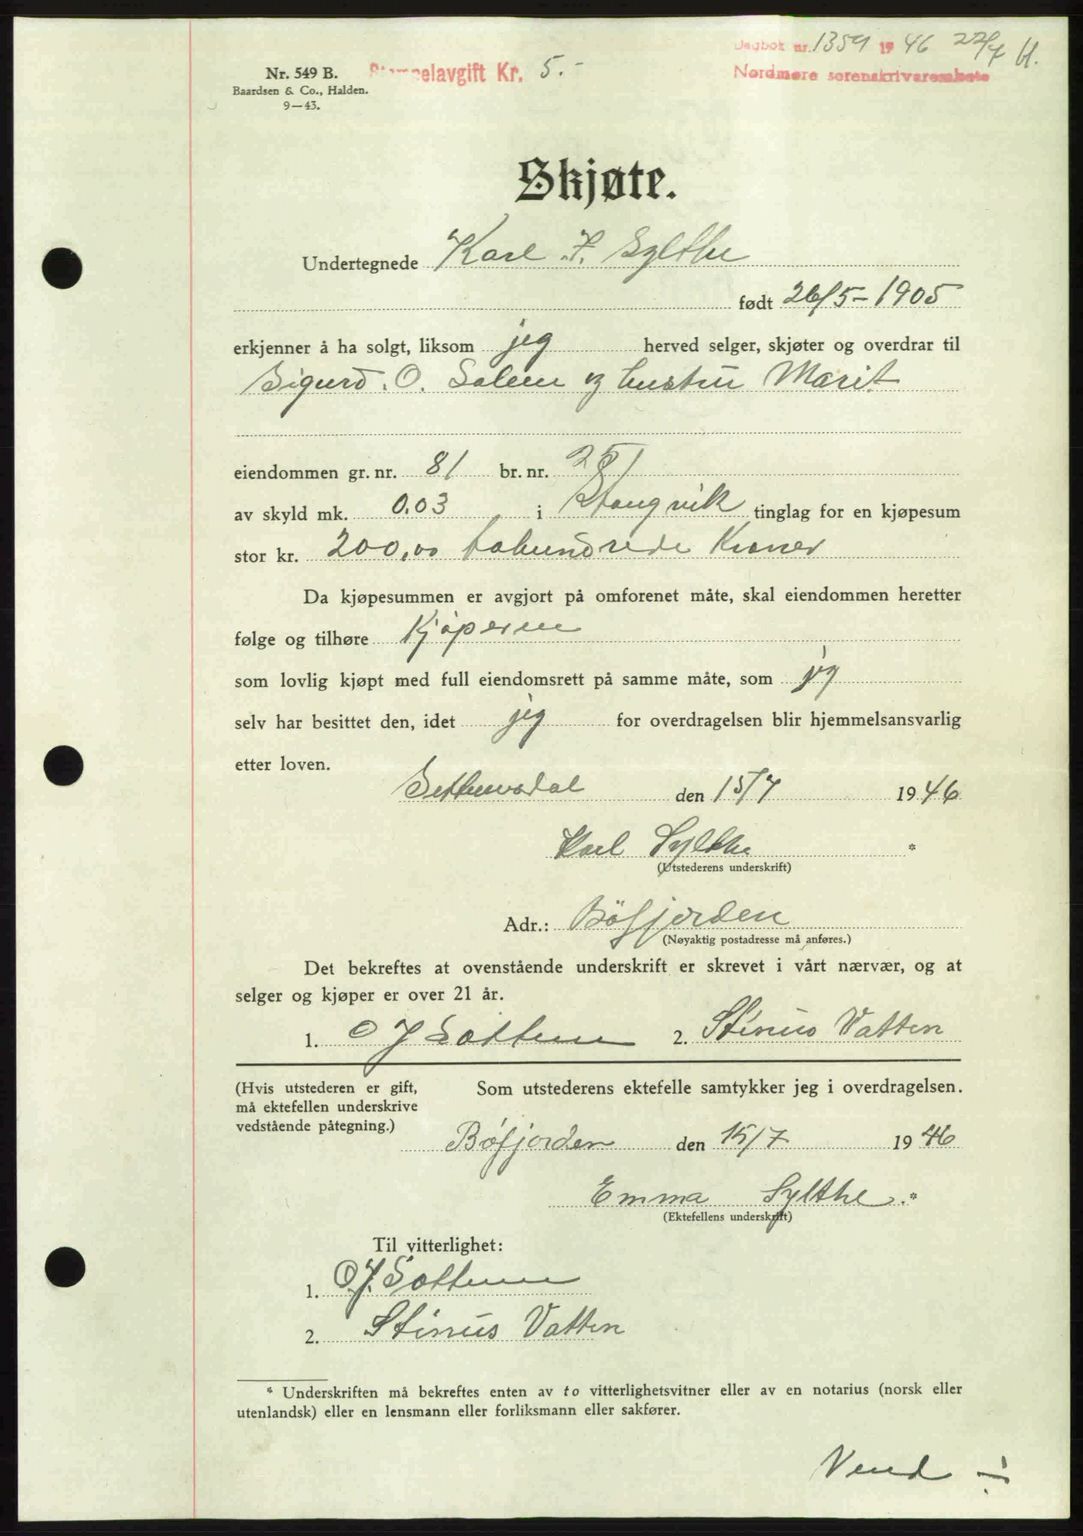 Dagbok nr. 1359 1946 22/7 H.
Nordmøre sorenskriverembete
Stempelavgift Kr. 5.-
Nr. 549 B.
Baardsen & Co., Halden.
9—43.
Skjøte.
Undertegnede Karl F. Sylthe
født 26/5-1905
erkjenner å ha solgt, liksom jeg herved selger, skjøter og overdrar til
Sigurd. O. Salem og hustru Marit
eiendommen gr. nr. 81 br. nr. 251
av skyld mk. 0.03 i Stangvik tinglag for en kjøpesum
stor kr. 200,00 tohundrede Kroner
Da kjøpesummen er avgjort på omforenet måte, skal eiendommen heretter
følge og tilhøre Kjøperne
som lovlig kjøpt med full eiendomsrett på samme måte, som jeg
selv har besittet den, idet jeg for overdragelsen blir hjemmelsansvarlig
etter loven.
den 15/7 1946
Karl Sylthe *
(Utstederens underskrift)
Adr.: Bøfjorden
(Nøyaktig postadresse må anføres.)
Det bekreftes at ovenstående underskrift er skrevet i vårt nærvær, og at
selger og kjøper er over 21 år.
1. O J Søttem 2. Stinus Vatten
(Hvis utstederen er gift, Som utstederens ektefelle samtykker jeg i overdragelsen.
må ektefellen underskrive
vedstående påtegning.)
Bøfjorden den 15/7 1946
Emma Sylthe. *
(Ektefellens underskrift)
Til vitterlighet:
1. O.J. Søttem
2. Stinus Vatten
* Underskriften må bekreftes enten av to vitterlighetsvitner eller av en notarius (norsk eller
utenlandsk) eller en lensmann eller forliksmann eller sakfører.
Vend ÷